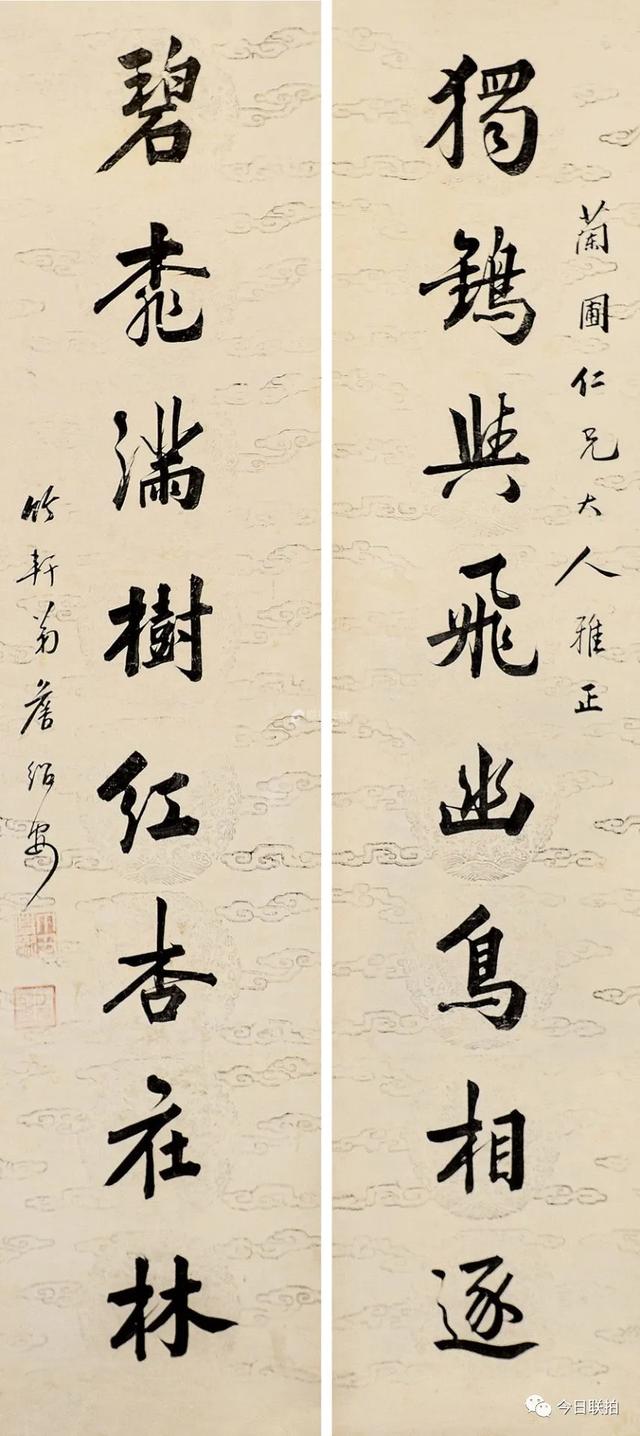 蘭圃仁兄大人雅正
獨鶴與飛幽鳥相逐
碧桃滿樹紅杏在林
竹軒弟詹紹安
今日联拍